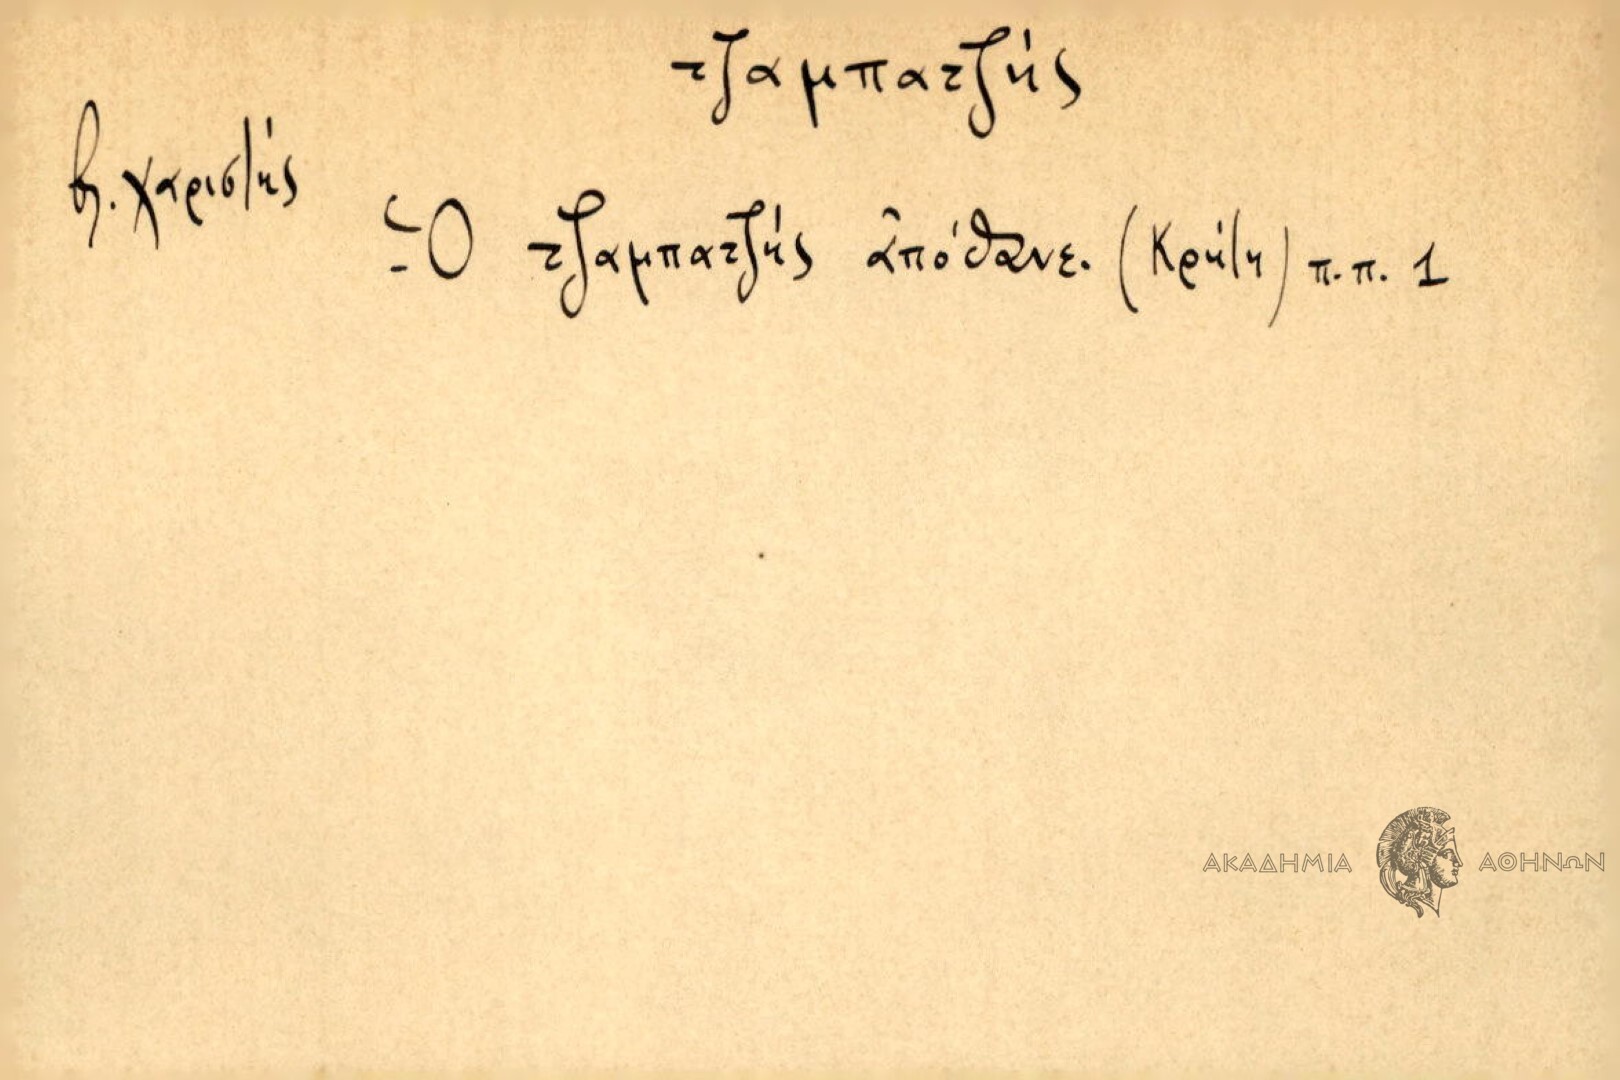 τζαμπατζής
βλ. χαριστής
Ὁ τζαμπατζής ἀπόθανε. (Κρήτη) π.π. 1
ΑΚΑΔΗΜΙΑ ΑΘΗΝΩΝ